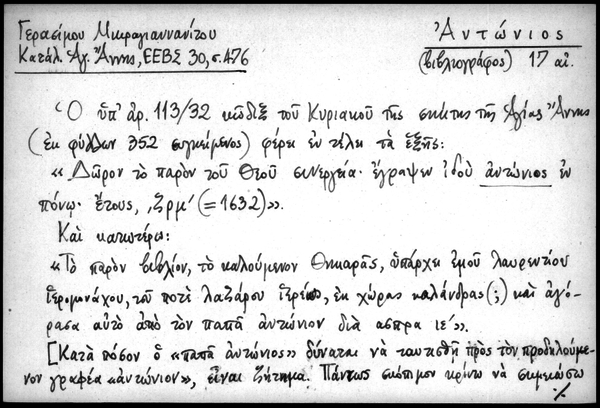 Γερασίμου Μικραγιαννανίτου
Κατάλ. Ἁγ. Ἄννης, ΕΕΒΣ 30, σ. 476
Ἀντώνιος
(βιβλιογράφος) 17 αἰ.
Ὁ ὑπ' ἀρ. 113/32 κῶδιξ τοῦ Κυριακοῦ τῆς σκήτης τῆς Ἁγίας Ἄννης
(ἐκ φύλλων 352 συγκείμενος) φέρει ἐν τέλει τὰ ἑξῆς:
« Δῶρον τὸ παρὸν τοῦ Θεοῦ συνεργεία· ἔγραψεν ἰδοὺ ἀντώνιος ἐν
πόνῳ· ἔτους, ͵ζρμ' (= 1632)».
Καὶ κατωτέρω:
«Τὸ παρὸν βιβλίον, τὸ καλούμενον Θηκαρᾶς, ὑπάρχει ἐμοῦ λαυρεντίου
ἱερομονάχου, τοῦ ποτὲ λαζάρου ἱερέως, ἐκ χώρας καλάνδρας (;) καὶ ἀγό-
ρασα αὐτὸ ἀπὸ τὸν παπᾶ ἀντώνιον διὰ ασπρα ιε'».
[Κατὰ πόσον ὁ «παπᾶ ἀντώνιος» δύναται νὰ ταυτισθῇ πρὸς τὸν προδηλούμε-
νον γραφέα «ἀντώνιον», εἶναι ζήτημα. Πάντως σκόπιμον κρίνω νὰ σημειώσω
./.